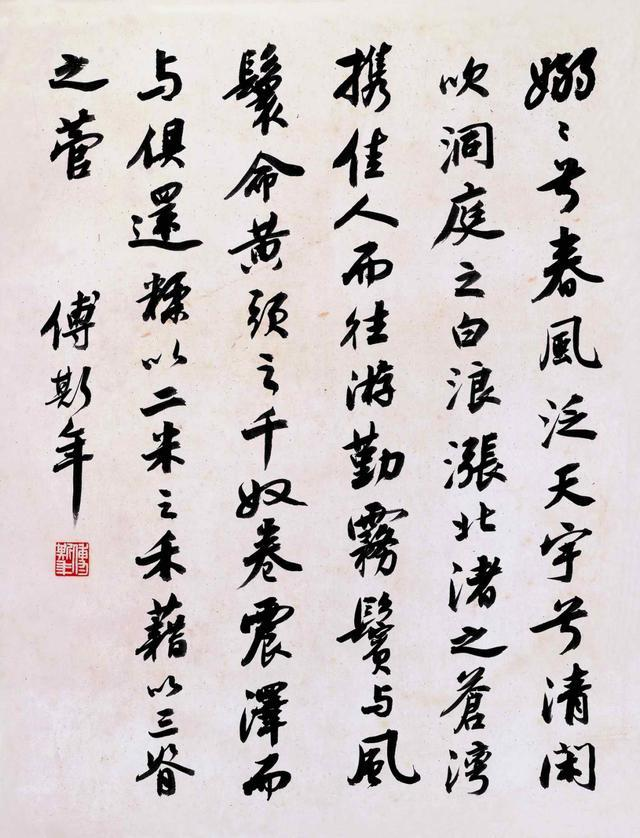 嫋〻兮春風泛天宇兮清閑
吹洞庭之白浪漲北渚之蒼湾
携佳人而往游勤霧鬢与風
鬟命黄頭之千奴卷震澤而
与俱還糅以二米之禾藉以三脊
之菅
傅斯年
傅斯年